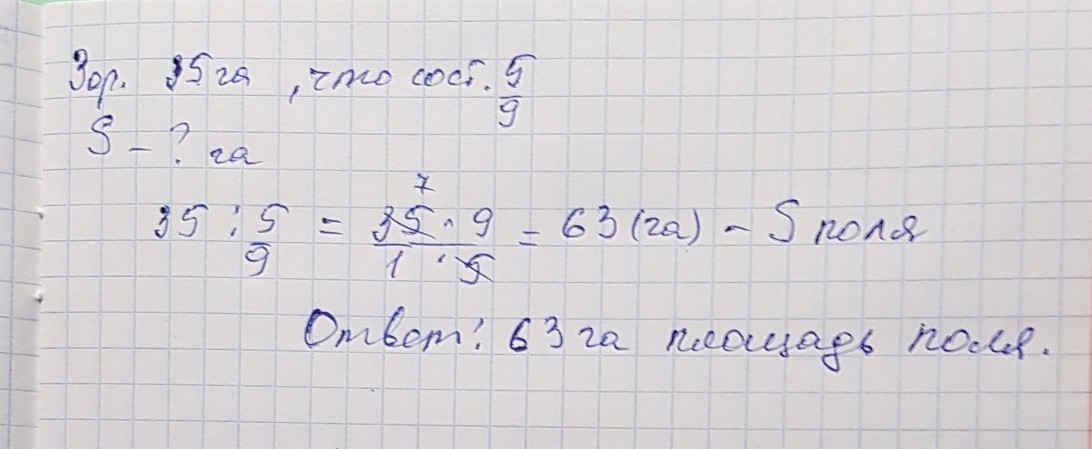 Зор. 35 га , что сост. 5/9
S - ? га
35 : 5/9 = 35 · 9 / 1 · 5 = 63 (га) - S поля
7
Ответ: 63 га площадь поля.